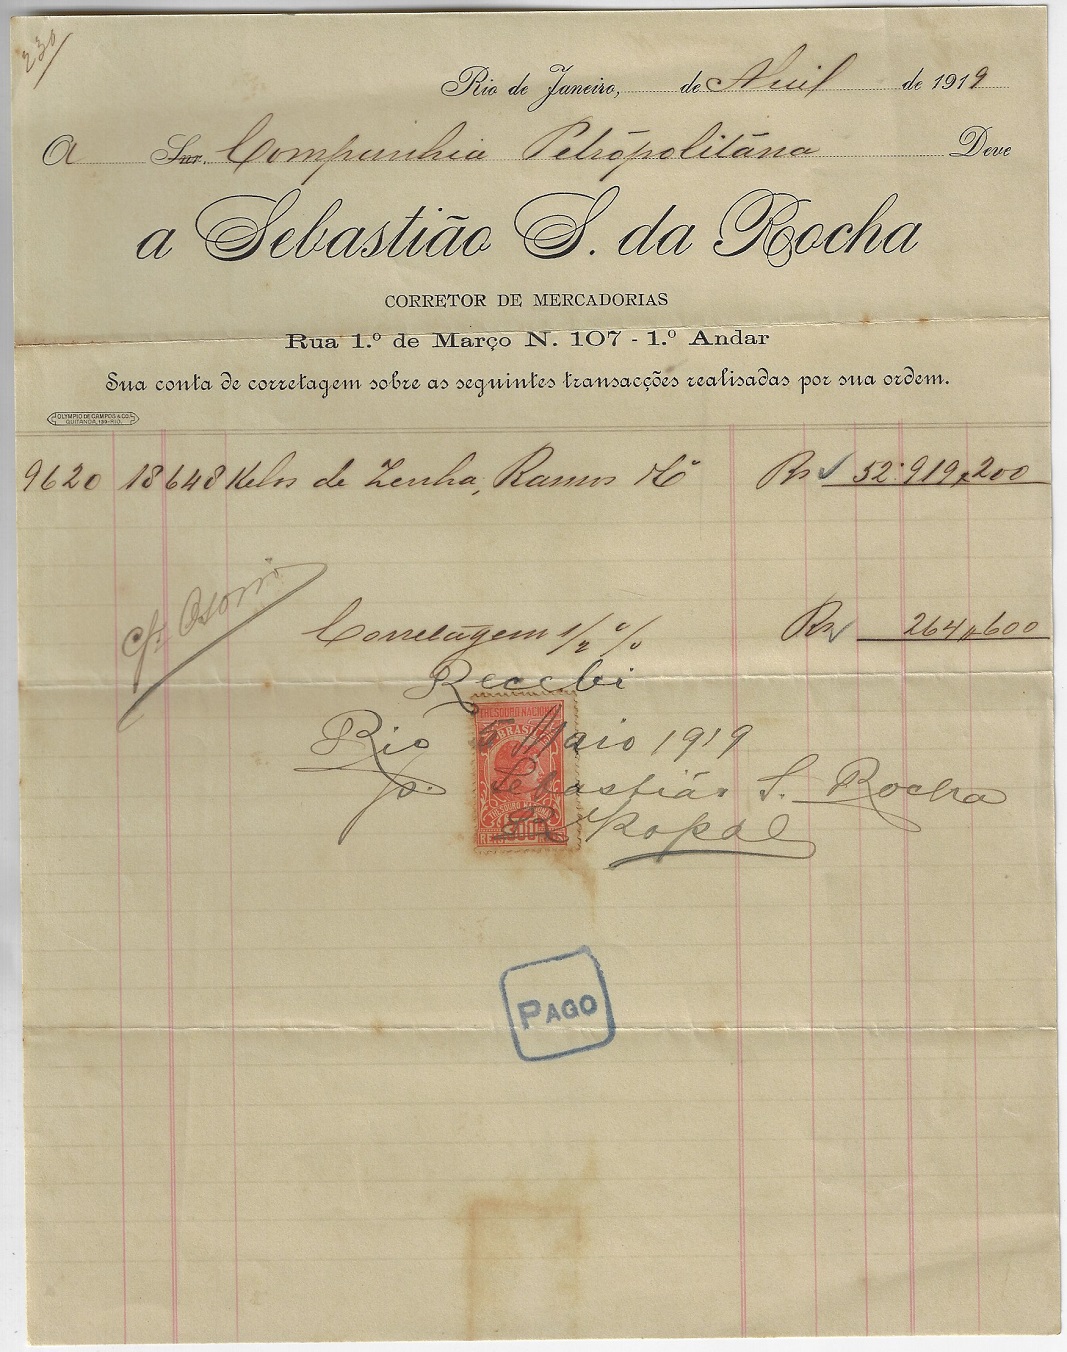 230/
Rio de Janeiro, de Abril de 1919
A Snr. Companhia Petropolitana Deve
a Sebastião S. da Rocha
CORRETOR DE MERCADORIAS
Rua 1.º de Março N. 107 - 1.º Andar
Sua conta de corretagem sobre as seguintes transacções realisadas por sua ordem.
OLYMPIO DE CAMPOS & CO.
QUITANDA, RIO.
9620 18648 Kilos de Zenha, Ramos & Cº Rs 52:919,200
Osorio
Corretagem 1/2 % Rs 264,600
Recebi
THESOURO NACIONAL
BRASIL
Rio 5 Maio 1919
p. Sebastião S. Rocha
THESOURO NACIONAL
300
REIS
PAGO